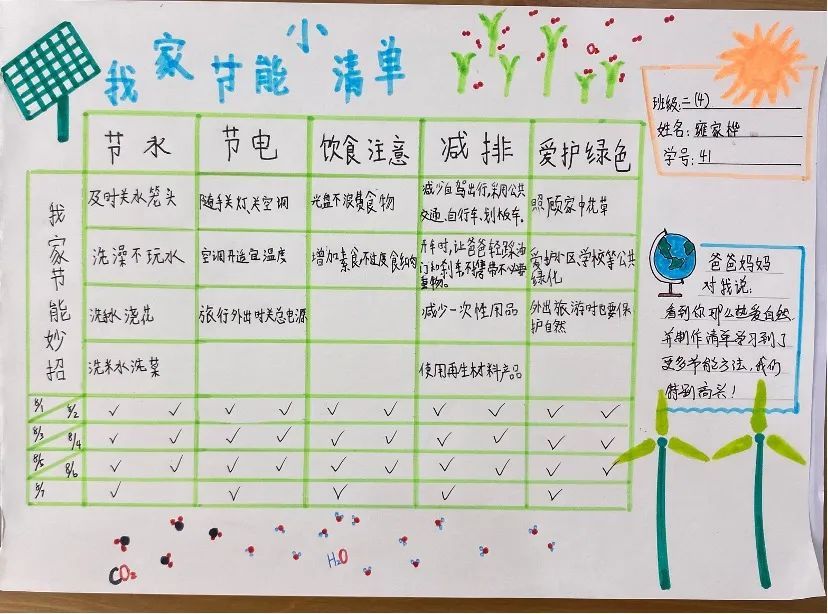 我家节能小清单
班级:二(4)
姓名:雍家桦
学号:41
节水
节电
饮食注意
减排
爱护绿色
我家节能妙招
及时关水笼头
随手关灯、关空调
光盘不浪费食物
减少自驾出行,采用公共
交通、自行车、划板车。
照顾家中花草
洗澡不玩水
空调开适宜温度
增加素食,不过度食纳肉
开车时,让爸爸轻踩油
门和刹车,不携带不必要
重物。
爱护小区学校等公共
绿化
浇花
旅行外出时关总电源
减少一次性用品
外出旅游时也要保
护自然
洗米水洗菜
使用再生材料产品
8/1 8/2 ✓ ✓ ✓ ✓ ✓ ✓ ✓ ✓ ✓ ✓
8/3 8/4 ✓ ✓ ✓ ✓ ✓ ✓ ✓ ✓ ✓ ✓
8/5 8/6 ✓ ✓ ✓ ✓ ✓ ✓ ✓ ✓ ✓ ✓
8/7 ✓ ✓ ✓ ✓ ✓
爸爸妈妈
对我说:
看到你那么热爱自然
并制作清单学习到了
更多节能方法,我们
特别高兴!
CO₂
H₂O